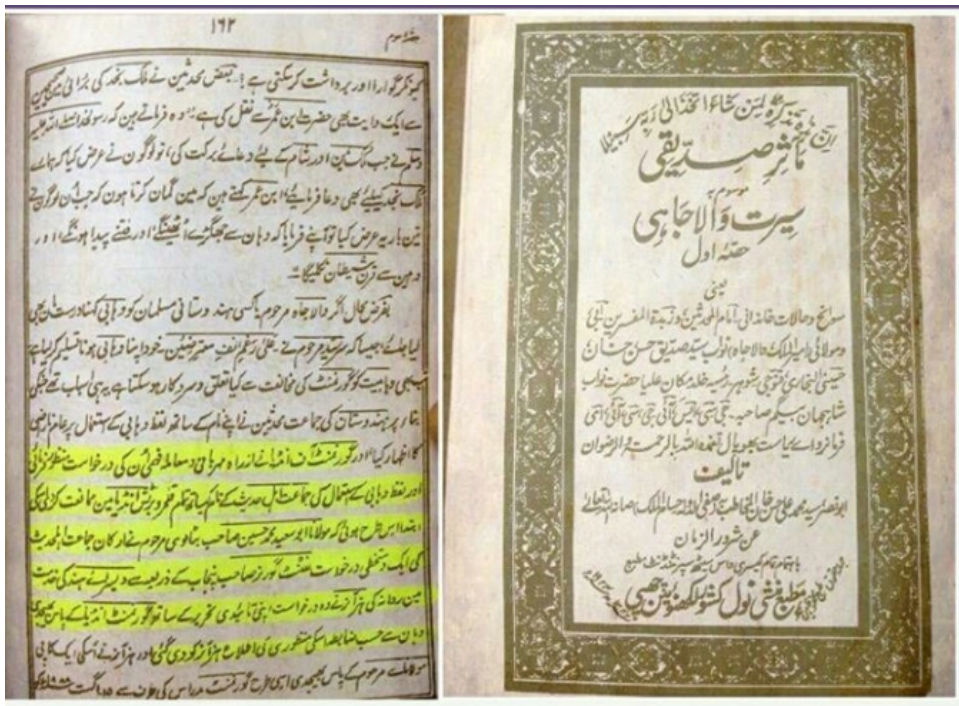 ۱۶۲
حصۂ سوم
کیونکر گوارا اور برداشت کر سکتی ہے؟ بعض محدثین نے ملک نجد کی برائی مین
سے ایک روایت بھی حضرت ابن عمرؓ سے نقل کی ہے، وہ فرماتے ہین کہ رسول خدا صلے اللہ علیہ
وسلم نے جب یمن اور شام کے لیے دعائے برکت کی، تو لوگون نے عرض کیا کہ ہمارے
ملک نجد کیلیے بھی دعا فرمایئے، ابن عمر کہتے ہین کہ مین گمان کرتا ہون کہ جب اُن لوگون نے
تین بار یہ عرض کیا تو آپنے فرمایا کہ وہان سے جھگڑے اُٹھینگے، اور فتنے پیدا ہونگے، اور
وہین سے قرن شیطان نکلیگا۔
بفرض محال اگر والا جاہ مرحوم، یا کسی ہندوستانی مسلمان کو وہابی کہنا درست بھی
لیا جائے، جیسا کہ سر سید مرحوم نے علیٰ رغم انف معترضین، خود اپنا وہابی ہونا تسلیم کر لیا ہے
تب بھی وہابیت کو گورنمنٹ کی مخالفت سے کیا تعلق و سروکار ہو سکتا ہے یہ ہی اسباب تھے جنکی
بنا پر ہندوستان کی جماعت محدثین نے اپنے نام کے ساتھ لفظ وہابی کے استعمال پر عام ناراضی
کا اظہار کیا، اور گورنمنٹ آف انڈیا نے از راہ مہربانی و معاملہ فہمی اُن کی درخواست منظور فرمائی
اور لفظ وہابی کے استعمال کی جماعت اہل حدیث کے نام کے ساتھ تمام قلمرو برٹش انڈیا مین ممانعت کر دی گئی
ابتدا اس طرح ہوئی کہ مولانا ابو سعید محمد حسین صاحب بٹالوی مرحوم نے ارکان جماعت اہلحدیث
کی ایک دستخطی درخواست لفٹنٹ گورنر صاحب پنجاب کے ذریعہ سے ویسرائے ہند کی خدمت
مین روانہ کی ہز آنر نے وہ درخواست اپنی تائیدی تحریر کے ساتھ گورنمنٹ انڈیا کے پاس بھیجدی
وہان سے حسب ضابطہ اسکی منظوری کی اطلاع ہز آنر کو دی گئی، اور ہز آنر نے اسکی ایک کاپی
مولانائے مرحوم کے پاس بھیجدی اسی طرح گورنمنٹ مدراس کی طرف سے ۱۵ اگست ۱۸۸۸ء کو
ان ہذہ تذکرۃ فمن شاء اتخذ الی ربہ سبیلا
مآثر صدیقی
موسوم بہ
سیرت والا جاہی
حصۂ اول
یعنی
سوانح و حالات خاندانی، امام المحدثین و زبدۃ المفسرین ابی
و مولائی امیر الملک والا جاہ، نواب سید صدیق حسن خان
حسینی البخاری، قنوجی، شوہر رئیسہ خلد مکان علیا حضرت نواب
شاہجہان بیگم صاحبہ۔ جی سی ایس آئی، جی سی آئی
فرمانروائے ریاست بھوپال تغمدہ اللہ بالرحمۃ والرضوان
تالیف
ابو نصر سید محمد علی حسن خان المخاطب بہ صفی الدولہ حسام الملک، صانہ اللہ تعالے
عن شرور الزمان
باہتمام کیسری داس سیٹھ سپرنٹنڈنٹ مطبع
مطبع منشی نول کشور لکھنؤ مین چھپی